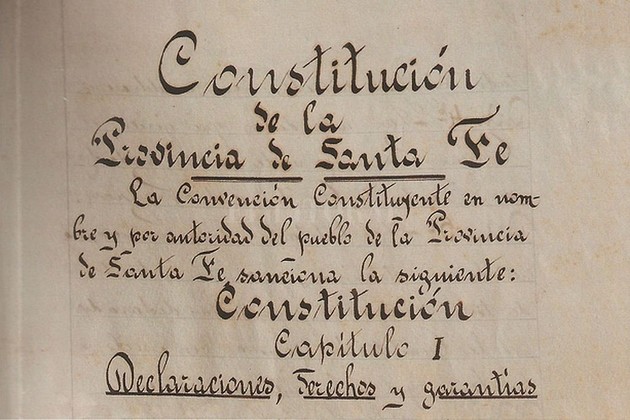 Constitución
de la
Provincia de Santa Fe
La Convención Constituyente en nom-
bre y por autoridad del pueblo de la Provincia
de Santa Fe, sanciona la siguiente:
Constitución
Capítulo I
Declaraciones, Derechos y garantías